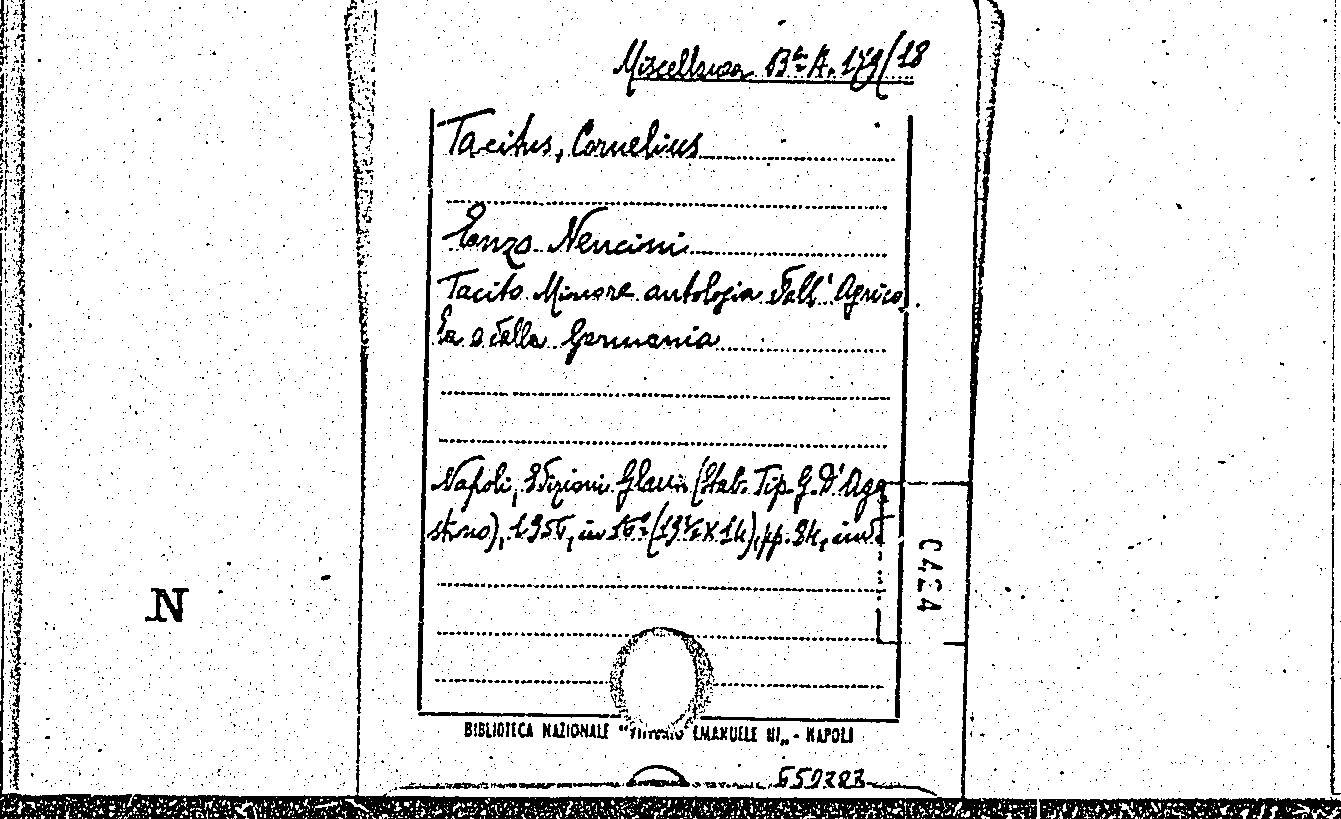 Miscellanea Bta A. 179/18
Tacitus, Cornelius
Enzo Nencini
Tacito Minore antologia dall' Agrico
la e dalla Germania
Napoli, Edizioni Glaux (Stab. Tip. G. D'Ago
stino), 195 , in 16° (19½ X 14), pp. 84, in
N
BIBLIOTECA NAZIONALE "VITTORIO EMANUELE III" - NAPOLI